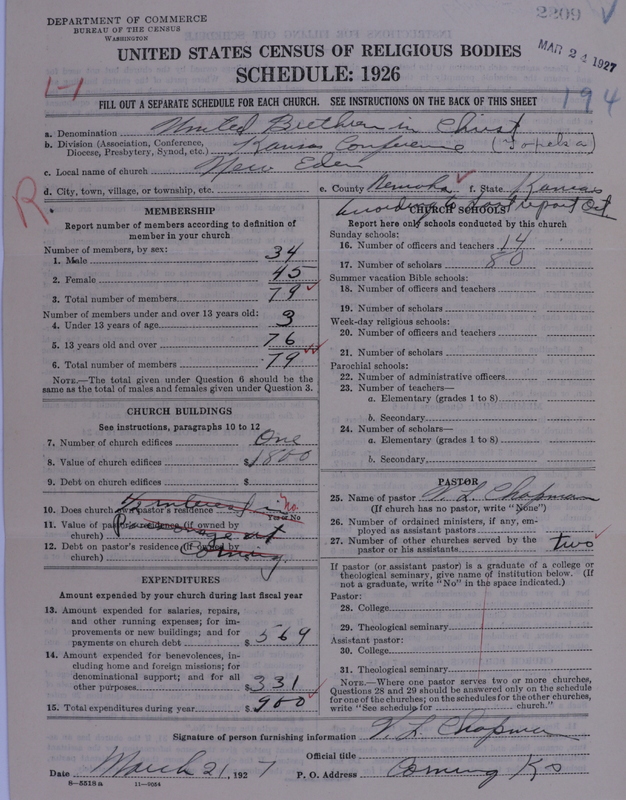 2209
DEPARTMENT OF COMMERCE
BUREAU OF THE CENSUS
WASHINGTON
MAR 24 1927
UNITED STATES CENSUS OF RELIGIOUS BODIES
SCHEDULE: 1926
1-1
194
FILL OUT A SEPARATE SCHEDULE FOR EACH CHURCH. SEE INSTRUCTIONS ON THE BACK OF THIS SHEET
a. Denomination United Brethren in Christ
b. Division (Association, Conference, Diocese, Presbytery, Synod, etc.) Kansas Conference (Topeka)
c. Local name of church New Eden
d. City, town, village, or township, etc. e. County Nemaha f. State Kansas
R
MEMBERSHIP
Report number of members according to definition of
member in your church
Number of members, by sex:
1. Male 34
2. Female 45
3. Total number of members 79
Number of members under and over 13 years old:
4. Under 13 years of age 3
5. 13 years old and over 76
6. Total number of members 79
NOTE.—The total given under Question 6 should be the
same as the total of males and females given under Question 3.
CHURCH BUILDINGS
See instructions, paragraphs 10 to 12
7. Number of church edifices One
8. Value of church edifices $1800
9. Debt on church edifices $
10. Does church own pastor's residence No
Yes or No
11. Value of pastor's residence (if owned by
church) $
12. Debt on pastor's residence (if owned by
church) $
Interest in
Parsonage at
Corning
EXPENDITURES
Amount expended by your church during last fiscal year
13. Amount expended for salaries, repairs,
and other running expenses; for im-
provements or new buildings; and for
payments on church debt $ 569
14. Amount expended for benevolences, in-
cluding home and foreign missions; for
denominational support; and for all
other purposes $ 331
15. Total expenditures during year $ 900
according to last report Oct
CHURCH SCHOOLS
Report here only schools conducted by this church
Sunday schools:
16. Number of officers and teachers 14
17. Number of scholars 80
Summer vacation Bible schools:
18. Number of officers and teachers
19. Number of scholars
Week-day religious schools:
20. Number of officers and teachers
21. Number of scholars
Parochial schools:
22. Number of administrative officers
23. Number of teachers—
a. Elementary (grades 1 to 8)
b. Secondary
24. Number of scholars—
a. Elementary (grades 1 to 8)
b. Secondary
PASTOR
25. Name of pastor W. L. Chapman
(If church has no pastor, write "None")
26. Number of ordained ministers, if any, em-
ployed as assistant pastors
27. Number of other churches served by the
pastor or his assistants two
If pastor (or assistant pastor) is a graduate of a college or
theological seminary, give name of institution below. (If
not a graduate, write "No" in the space indicated.)
Pastor:
28. College
29. Theological seminary
Assistant pastor:
30. College
31. Theological seminary
NOTE.—Where one pastor serves two or more churches,
Questions 28 and 29 should be answered only on the schedule
for one of the churches; on the schedules for the other churches,
write "See schedule for church."
Signature of person furnishing information W. L. Chapman
Official title
Date March 21, 1927 P. O. Address Corning Ks
8—5518a 11—9054